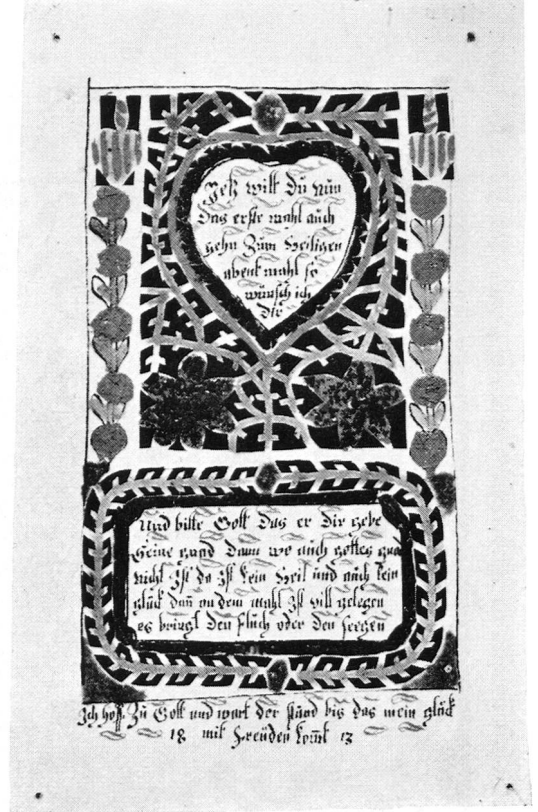 Jetz willt Du nun
Das erste mahl auch
gehn Zum Heiligen
abentmahl so
wünsch ich
Dir
Und bitte Gott Das er Dir gebe
Seine gnad Dann wo auch gottes gnad
nicht Ist da Ist kein Heil und auch kein
glück dan an dem mahl Ist vill gelegen
es bringt Den Fluch oder Den seegen
Ich hoff Zu Gott und wart der stund bis das mein glück
18 mit Freüden komt 13